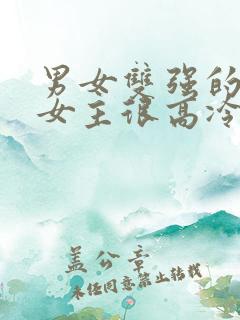 男女雙强的
女王很高冷
盖公章
未经同意禁止转载